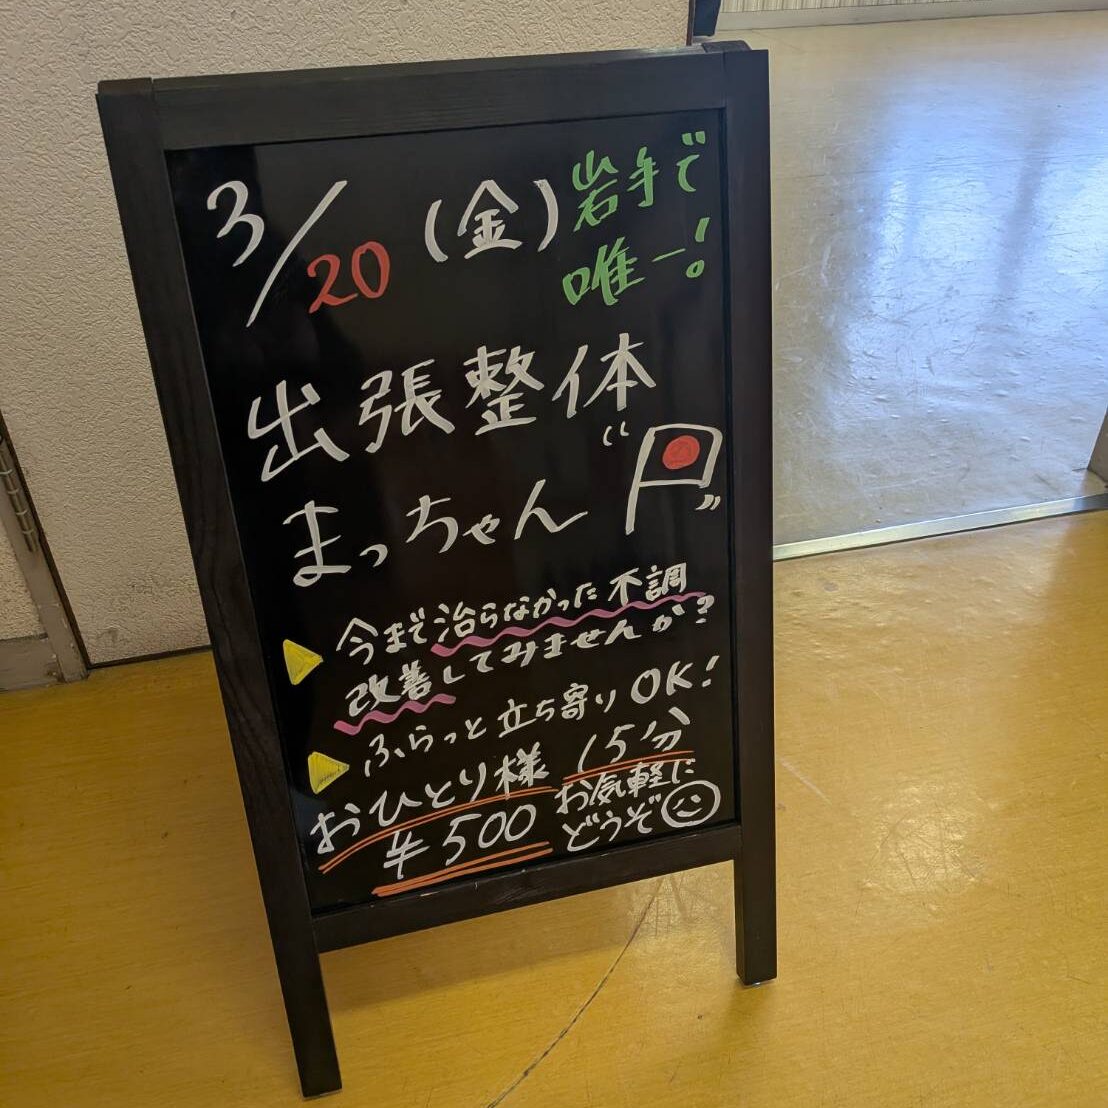 3/20(金)
岩手で
唯一!
出張整体
まっちゃん"円"
今まで治らなかった不調
改善してみませんか?
ふらっと立ち寄りOK!
おひとり様 15分
¥500
お気軽に
どうぞ